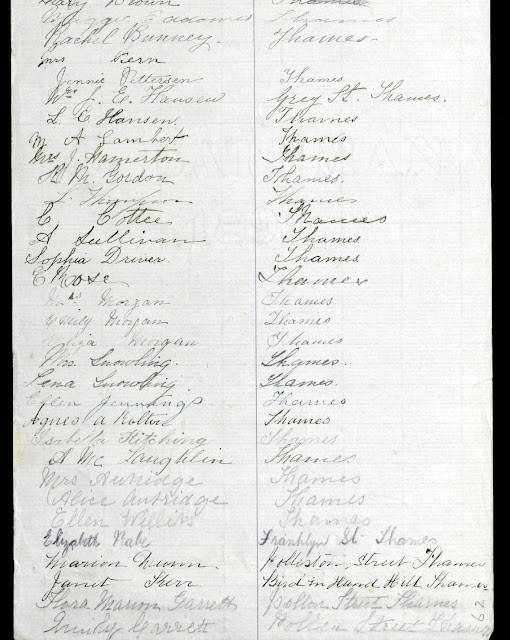 Mary Brown Thames
Adams Thames
Rachel Bunney. Thames
Mrs Kern
Jennie Pettersen Thames
Mrs J. E. Hansen Grey St. Thames.
L E Hansen. Thames
M A Lambert Thames
Mrs J. Hamerton Thames
M. Gordon Thames.
Thames
C Cottee Thames
A Sullivan Thames
Sophia Driver. Thames
E Rose Thames
Mrs Morgan Thames
Emily Morgan Thames
Eliza Morgan Thames
Mrs. Snowling. Thames.
Lena Snowling Thames.
Ellen Jennings Thames
Agnes A Thames
Isabella Kitching Thames
A Mc Laughlin Thames
Mrs Autridge Thames
Alice Autridge Thames
Ellen Willits Thames
Elizabeth Rabe Franklyn St Thames
Marion Nunn. Rolleston Street Thames
Janet Kerr Bird in Hand Hill Thames
Flora Marion Garrett Street Thames
Emily Garrett Street Thames
62